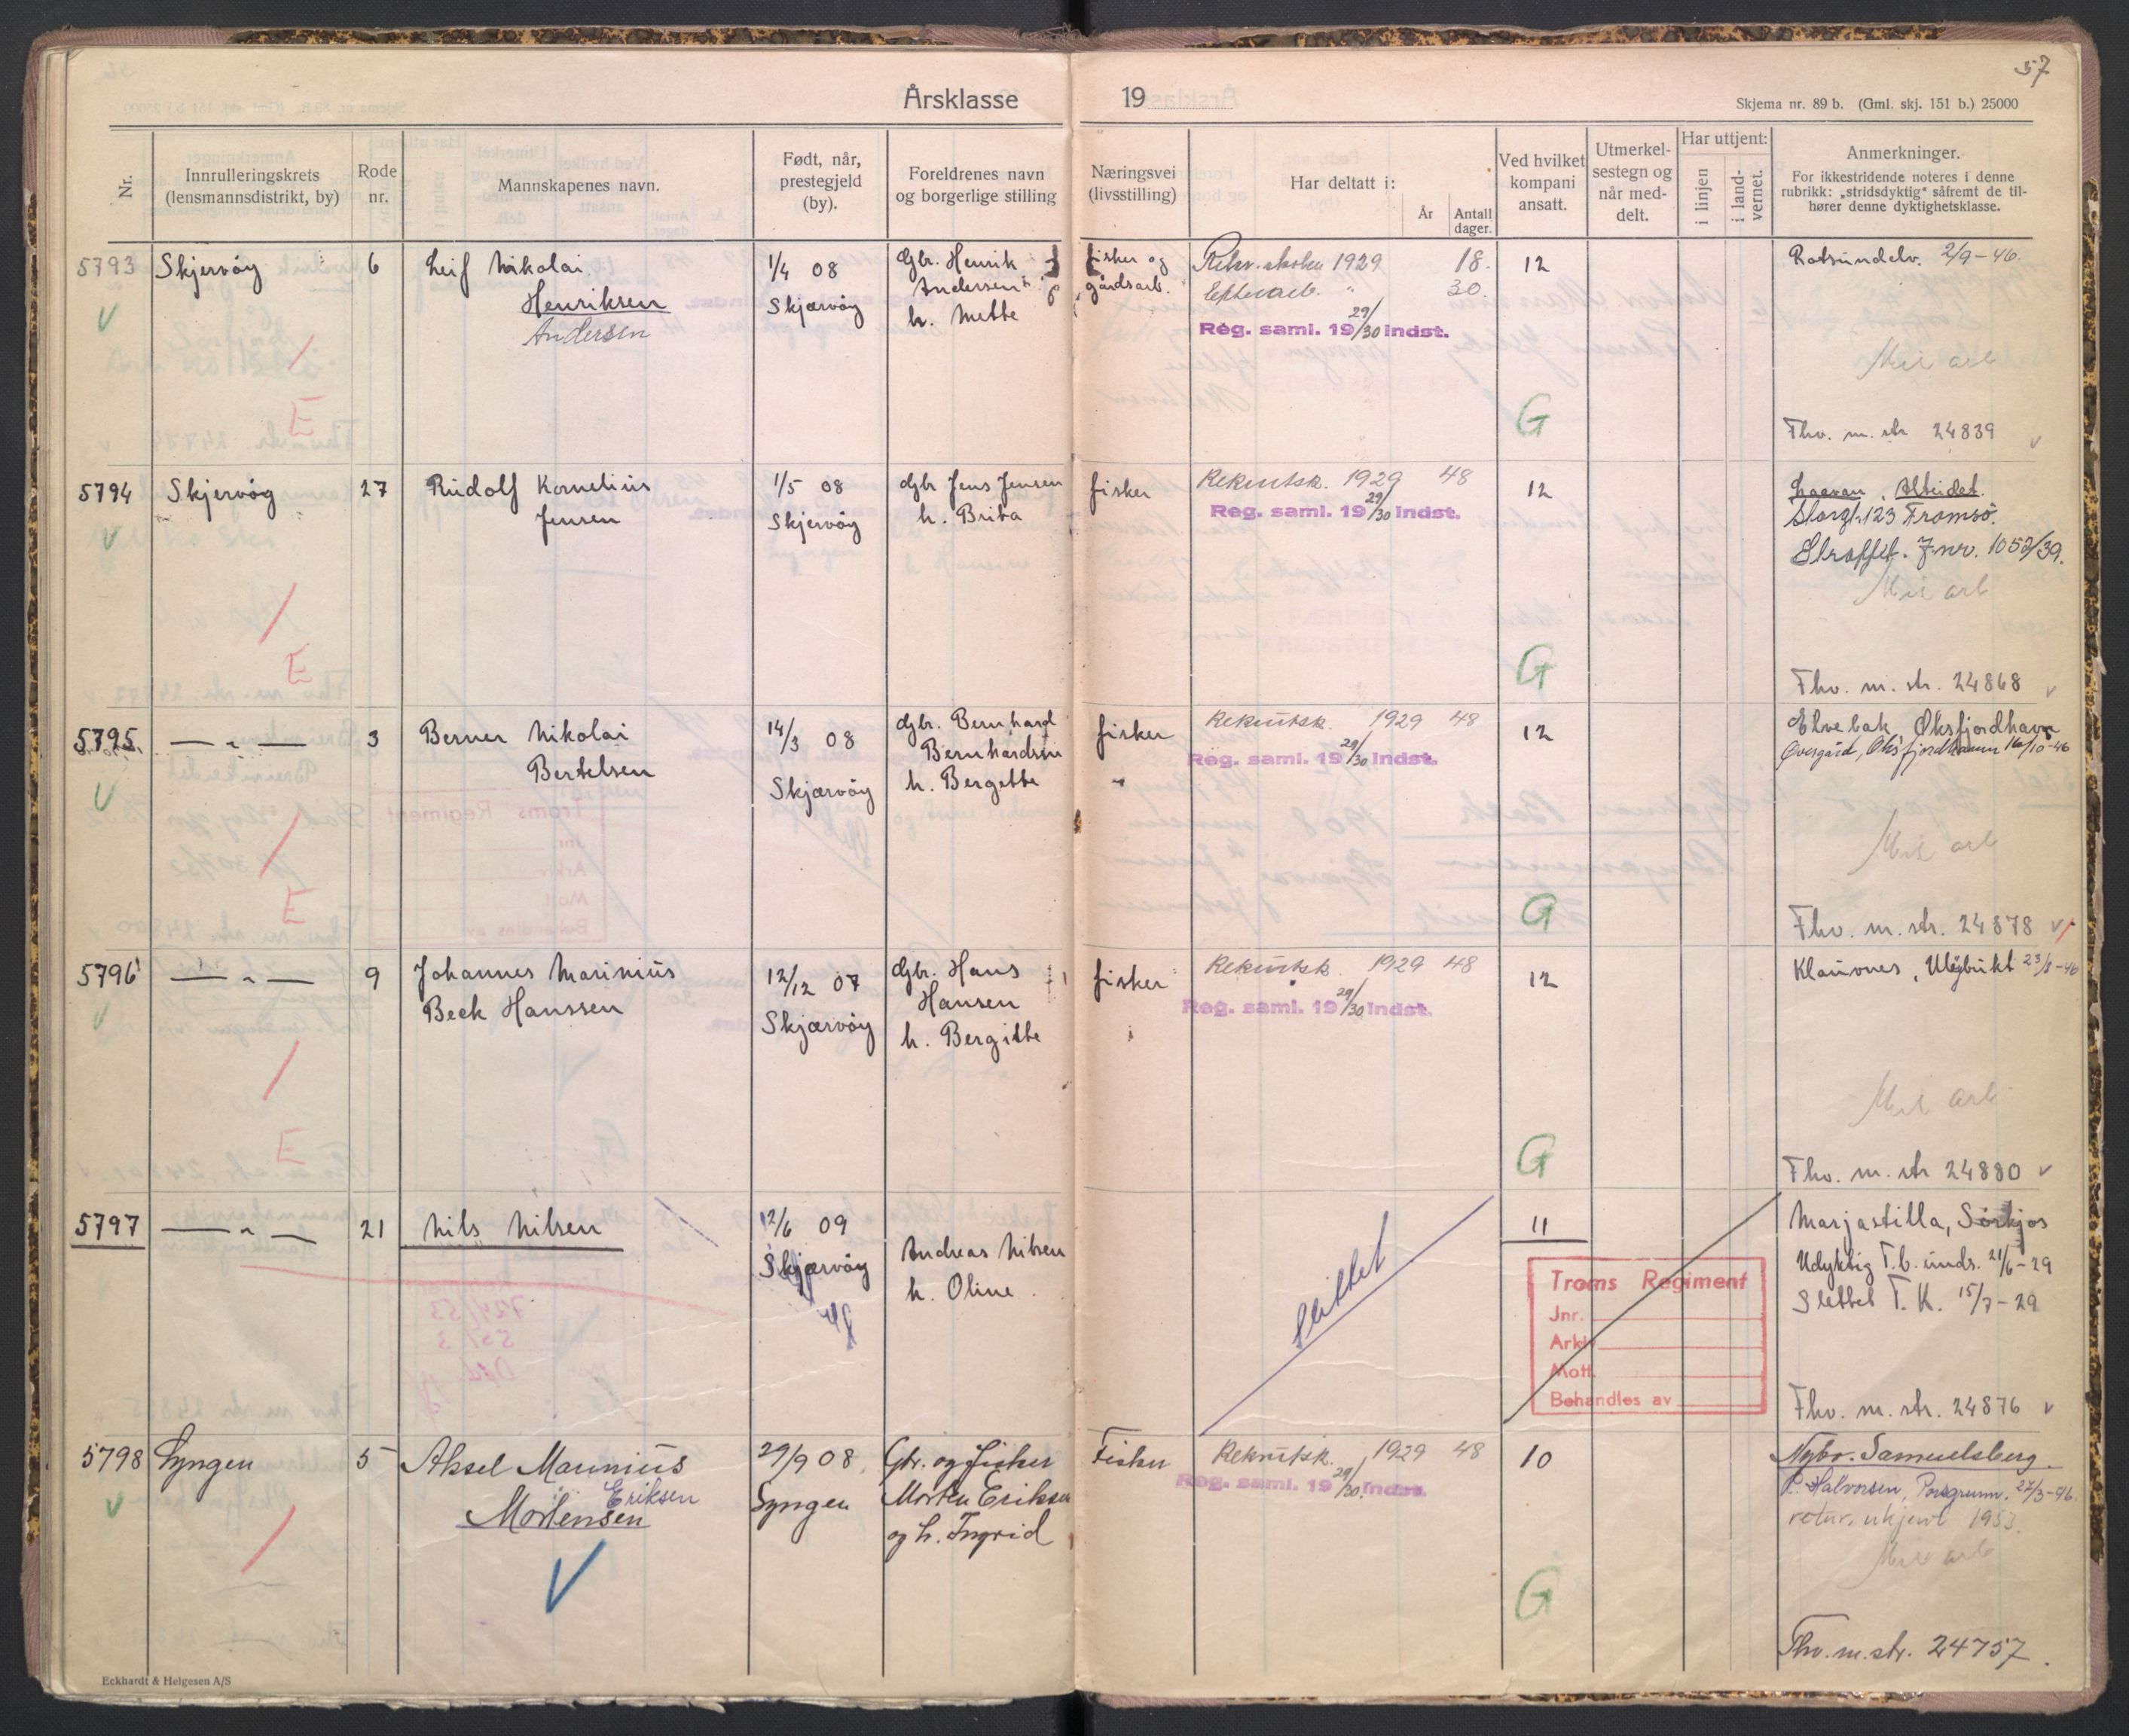 57
Årsklasse 19
Skjema nr. 89 b. (Gml. skj. 151 b.) 25000
Nr.
Innrulleringskrets
(lensmannsdistrikt, by)
Rode
nr.
Mannskapenes navn.
Født, når,
prestegjeld
(by).
Foreldrenes navn
og borgerlige stilling
Næringsvei
(livsstilling)
Har deltatt i:
År
Antall
dager.
Ved hvilket
kompani
ansatt.
Utmerkel-
sestegn og
når med-
delt.
Har uttjent:
i linjen
i land-
vernet.
Anmerkninger.
For ikkestridende noteres i denne
rubrikk: „stridsdyktig“ såfremt de til-
hører denne dyktighetsklasse.
5793 Skjervöy 6 Leif Nikolai
Henriksen
Andersen
1/4 08
Skjærvöy
Gbr. Henrik
Andersen
h. Mette
fisker og
gårdsarb.
Rekr.skolen 1929 18.
30.
Reg. saml. 19 29/30 Indst.
12
Rotsundelv. 2/9-46.
Mil arb
E
G
Thv. m. str 24839
5794 Skjervöy 27 Rudolf Kornelius
Jensen
1/5 08
Skjervöy
Gbr Jens Jensen
h. Brita
fisker
Rekrutsk. 1929 48
Reg. saml. 19 29/30 Indst.
12
Alteidet.
Storgt. 123 Tromsö.
Straffet. J.nr. 1052/39.
Mil arb
E
G
Thv. m. str. 24868
5795 — " — 3 Berner Nikolai
Bertelsen
14/3 08
Skjærvöy
Gbr. Bernhard
Bernhardsen
h. Bergette
fisker
"
Rekrutsk. 1929 48
Reg. saml. 19 29/30 Indst.
12
Elvebak Øksfjordhavn
Øvergård, Øksfjordhavn 16/10-46
Mil arb
E
G
Thv. m. str. 24878
5796 — " — 9 Johannes Marinius
Beck Hanssen
12/12 07
Skjærvöy
Gbr. Hans
Hansen
h. Bergitte
fisker
Rekrutsk. 1929 48
Reg. saml. 19 29/30 Indst.
12
Klauvnes, Uløybukt 23/8-46
Mil arb
E
G
Thv. m. str 24880
5797 — " — 21 Nils Nilsen
12/6 09
Skjærvöy
Andreas Nilsen
h. Oline
slettet
11
Troms Regiment
Jnr.
Arkiv
Mott.
Behandles av
Marjastilla, Sörkjos
Udyktig T.b. unds. 21/6-29
Slettet T. K. 15/7-29
Thv. m. str. 24876
5798 Lyngen 5 Aksel Marinius
Eriksen
Mortensen
29/9 08
Lyngen
Gbr. og fisker
Morten Eriksen
og h. Ingrid
Fisker
Rekrutsk. 1929 48
Reg. saml. 19 29/30 Indst.
10
Nybr. Samuelsberg.
P. Halvorsen, Porsgrunn. 27/3-46.
retur. ukjent 1953.
Mil arb
G
Thv. m. str. 24757.
Eckhardt & Helgesen A/S